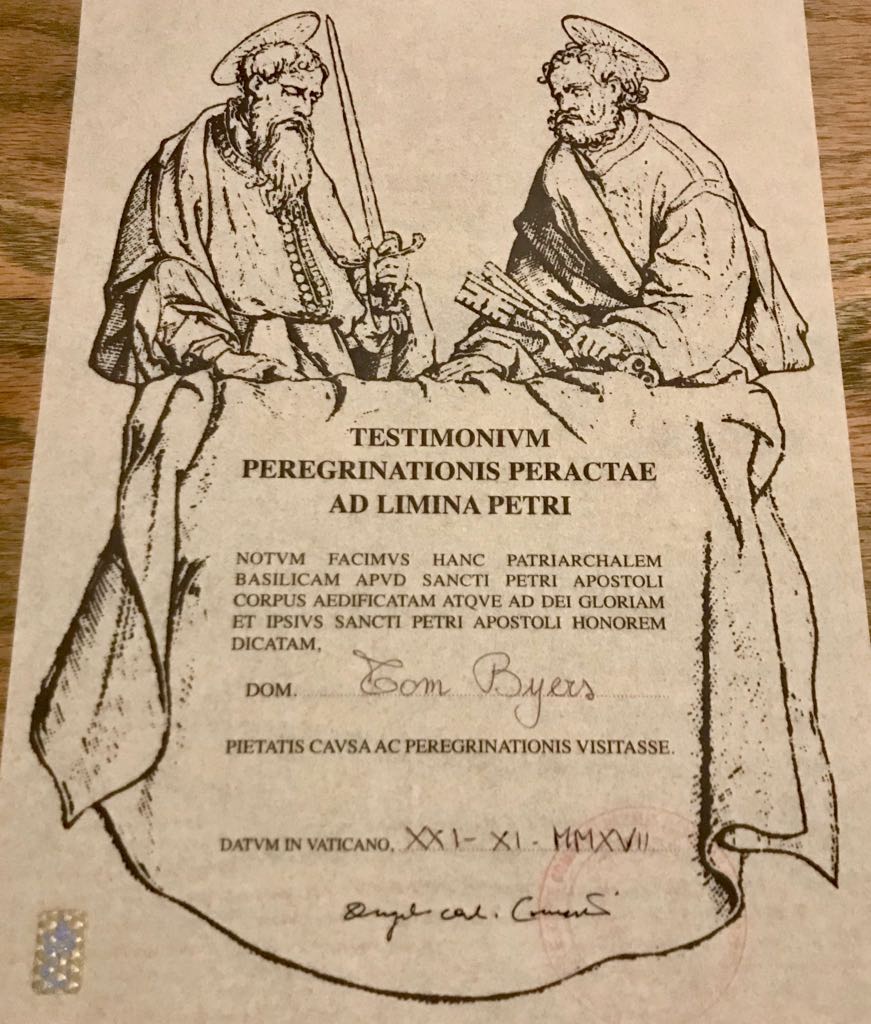 TESTIMONIVM
PEREGRINATIONIS PERACTAE
AD LIMINA PETRI
NOTVM FACIMVS HANC PATRIARCHALEM
BASILICAM APVD SANCTI PETRI APOSTOLI
CORPUS AEDIFICATAM ATQVE AD DEI GLORIAM
ET IPSIVS SANCTI PETRI APOSTOLI HONOREM
DICATAM,
DOM. Tom Byers
PIETATIS CAVSA AC PEREGRINATIONIS VISITASSE.
DATVM IN VATICANO, XXI-XI-MMXVII